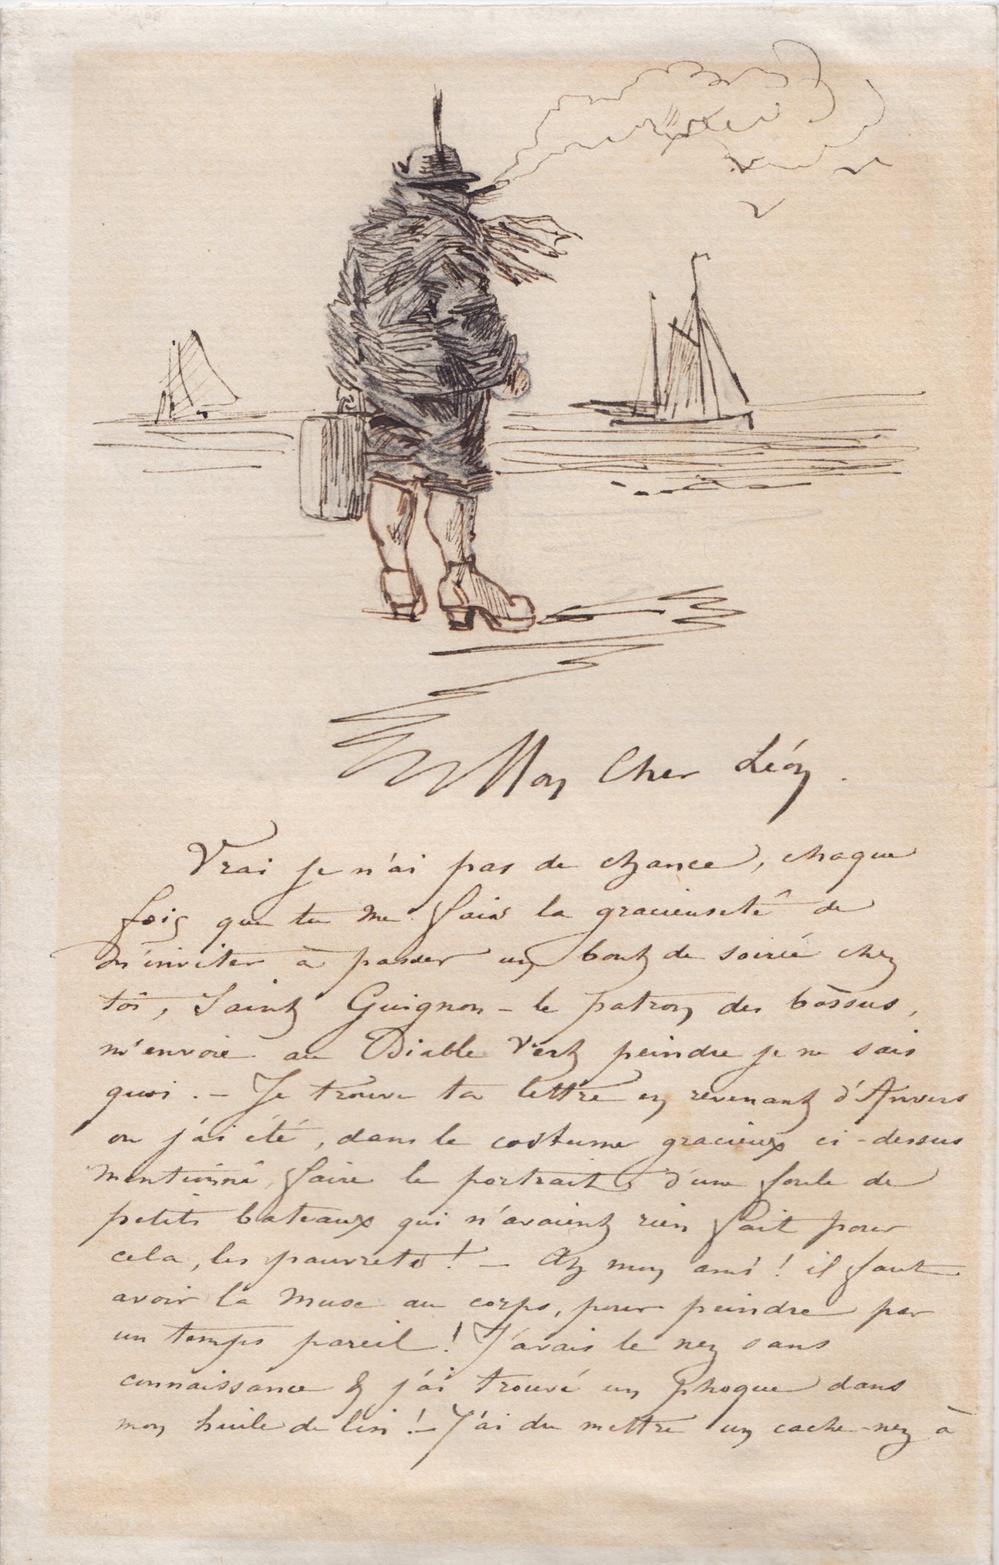 Mon Cher Léon.
Vrai je n'ai pas de chance, chaque
fois que tu me fais la gracieuseté de
m'inviter à passer un bout de soirée chez
toi, Saint Guignon – le patron des bossus,
m'envoie au Diable Vert peindre je ne sais
quoi. – Je trouve ta lettre en revenant d'Anvers
ou j'ai été, dans le costume gracieux ci-dessus
mentionné, faire le portrait d'une foule de
petits bateaux qui n'avaient rien fait pour
cela, les pauvrets! – Ah mon ami! il faut
avoir la Muse au corps, pour peindre par
un temps pareil! J'avais le nez sans
connaissance & j'ai trouvé un phoque dans
mon huile de lin! – J'ai du mettre un cache-nez à